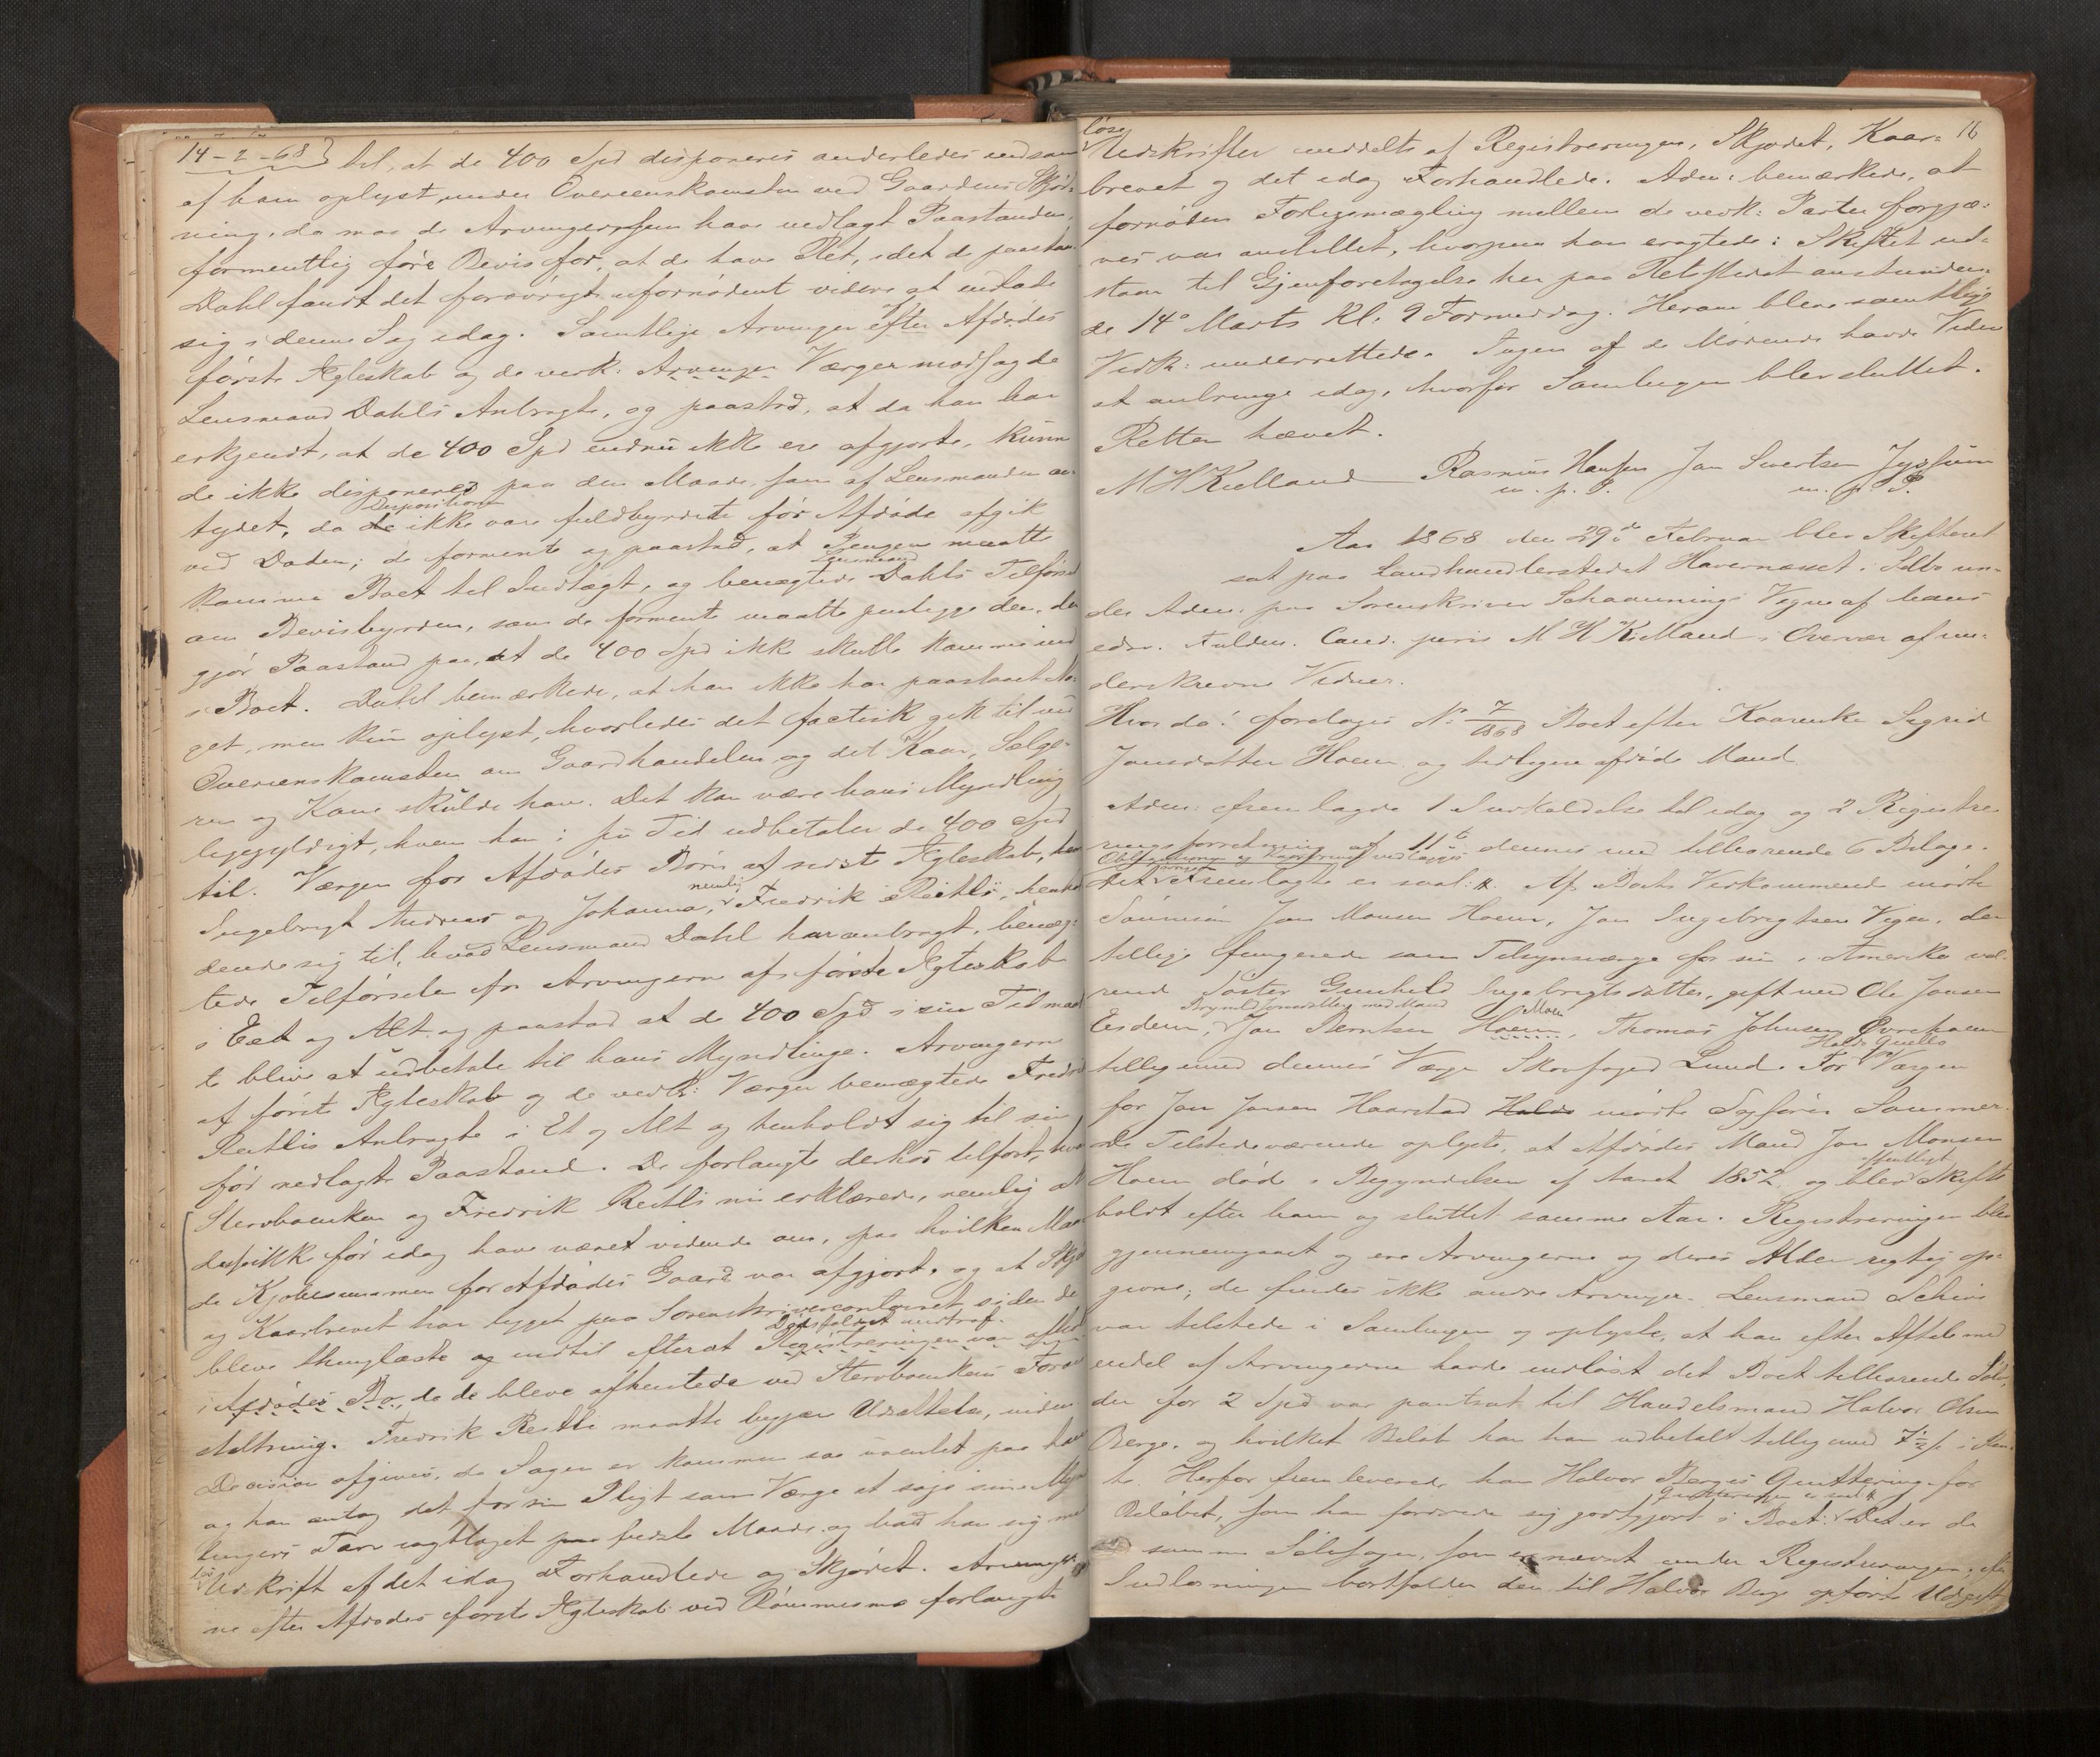 14-2-68 } til, at de 400 Spd disponeres anderledes end som
af ham oplyst, under Overeenskomsten ved Gaardens Skjød-
ning, da maa de Arvinger, som have nedlagt Paastanden,
formentlig føre Bevis for, at de have Ret, idet de paastaa
Dahl fandt det forøvrigt ufornødent videre at indlade
sig i denne Sag idag. Samtlige Arvinger efter Afdødes
første Ægteskab og de vedk: Arvinger Værger modsagde
Lensmand Dahls Anbragte, og paastod, at da han har
erkjendt, at de 400 Spd endnu ikke ere afgjorte, kunne
de ikke disponeres paa den Maade, som af Lensmanden an-
Dispositionen
tydet, da de ikke vare fuldbyrdede før Afdøde afgik
ved Døden; de formente og paastod, at Pengene maatte
Lensmand
komme Boet til Indtægt, og benægtede Dahls Tilførsel
om Bevisbyrden, som de formente maatte paaligge den, der
gjør Paastand paa, at de 400 Spd ikke skulle komme ind
i Boet. Dahl bemærkede, at han ikke har paastaaet No-
get, men kun oplyst, hvorledes det factisk gik til ved
Overeenskomsten om Gaardhandelen og det Kaar, Sælge-
ren og Kone skulde have. Det kan være hans Myndling
ligegyldigt, hvem han i sin Tid udbetaler de 400 Spd
til. Værgen for Afdødes Børn af sidste Ægteskab,
nemlig
Ingebrigt Andreas og Johanna, Fredrik Rectli, henhol-
dende sig til, hvad Lensmand Dahl har anbragt, benæg-
tede Tilførselen fra Arvingerne af første Ægteskab
i Eet og Alt og paastod at de 400 Spd i sin Tid maat
te blive at udbetale til hans Myndlinge. Arvingerne
af først Ægteskab og de vedk: Værger benægtede Fredrik
Rectlis Anbragte i Et og Alt og henholdt sig til sin
før nedlagte Paastand. De forlangte derhos tilført, hvad
Stervboenken og Fredrik Rectli nu erklærede, nemlig at
de ikke før idag have været vidende om, paa hvilken Maa-
de Kjøbesummen for Afdødes Gaard var afgjort, og at Skjø
og Kaarbrevet har ligget paa Sorenskrivercontoiret, siden de
Dødsfaldet indtraf
bleve thinglæste og indtil efterat Registreringen var afholdt
i Afdødes Bo, da de bleve afhentede ved Stervboenkens Foran-
staltning. Fredrik Rectli maatte begjære Udsættelse, inden
Decision afgives, da Sagen er kommen saa uventet paa ham
og han antog det for sin Pligt som Værge at søge sine Mynd
lingers Tarv iagttaget paa bedste Maade og bad han sig med
løs
Udskrift af det idag Forhandlede og Skjødet. Arvinger
ne efter Afdødes første Ægteskab ved Rømmesmo forlangte
16
løse
Udskrifter meddelt af Registreringen, Skjødet, Kaar-
brevet og det idag Forhandlede. Adm: bemærkede, at
fornøden Forligsmægling mellem de vedk: Parter forgjæ-
ves var anstillet, hvorpaa han eragtede: Skiftet ud-
staar til Gjenforetagelse her paa Retstedet anstunden-
de 14de Marts Kl. 9 Formiddag. Herom bleve samtlige
Vedk: underrettede. Ingen af de Mødende havde Videre
at anbringe idag, hvorfor Samlingen blev sluttet.
Retten hævet.
M H Kielland Rasmus Hansen Jon Sivertsen
m. p. P. m. p. P.
Aar 1868 den 29de Februar blev Skifteret
sat paa Landhandlerstedet Havernæsset i Selbo un-
der Adm. paa Sorenskriver Schaannings Vegne af hans
edsv. Fuldm. Cand. juris M H Kielland i Overvær af un-
derskrevne Vidner.
Hvor da: foretoges No 7/1868 Boet efter Kaarenke Sigrid
Jonsdatter Hoem og tidligere afdøde Mand
Adm: fremlagde 1 Indkaldelse til idag og 2 Registre-
ringsforretning af 11te dennes med tilhørende 6 Bilage.
Det Fremlagte er saal: Af Boets Vedkommende mødte
Sønnesøn Jon Monsen Hoem, Jon Ingebrigtsen Vigen, der
tillige fungerede som Tilsynsværge for sin i Amerika væ-
rende Søster Gunhild Ingebrigtsdatter, gift med Ole Jonsen
Brynild Jonsdatter med Mand Moen
Eidem, Jon Berntsen Hoem, Thomas Johnsen Øvrehoem
tilligemed dennes Værge Skovfoged Lund. For Værgen
for Jon Jonsen Haarstad mødte Sagfører Sommer.
De Tilstedeværende oplyste, at Afdødes Mand Jon Monsen
offentligt
Hoem døde i Begyndelsen af Aaret 1852 og blev Skifte
holdt efter ham og sluttet samme Aar. Registreringen blev
gjennemgaaet og ere Arvingerne og deres Alder rigtig op-
givne; der findes ikke andre Arvinger. Lensmand
var tilstede i Samlingen og oplyste, at han efter Aftale med
endel af Arvingerne havde indløst det Boet tilhørende Sølv,
der for 2 Spd var pantsat til Handelsmand Halvor Olsen
Berge, og hvilket Beløb han har udbetalt tilligemed i Ren-
te. Herfor fremleverede han Halvor Berges Quittering for
Quitteringen er saal:
Beløbet, som han fordrede sig godtgjort i Boet. Det er de
samme Sølvsager, som er nævnt under Registreringen, efter
Indløsningen bortfalder den til Halvor Berge opførte Udgift